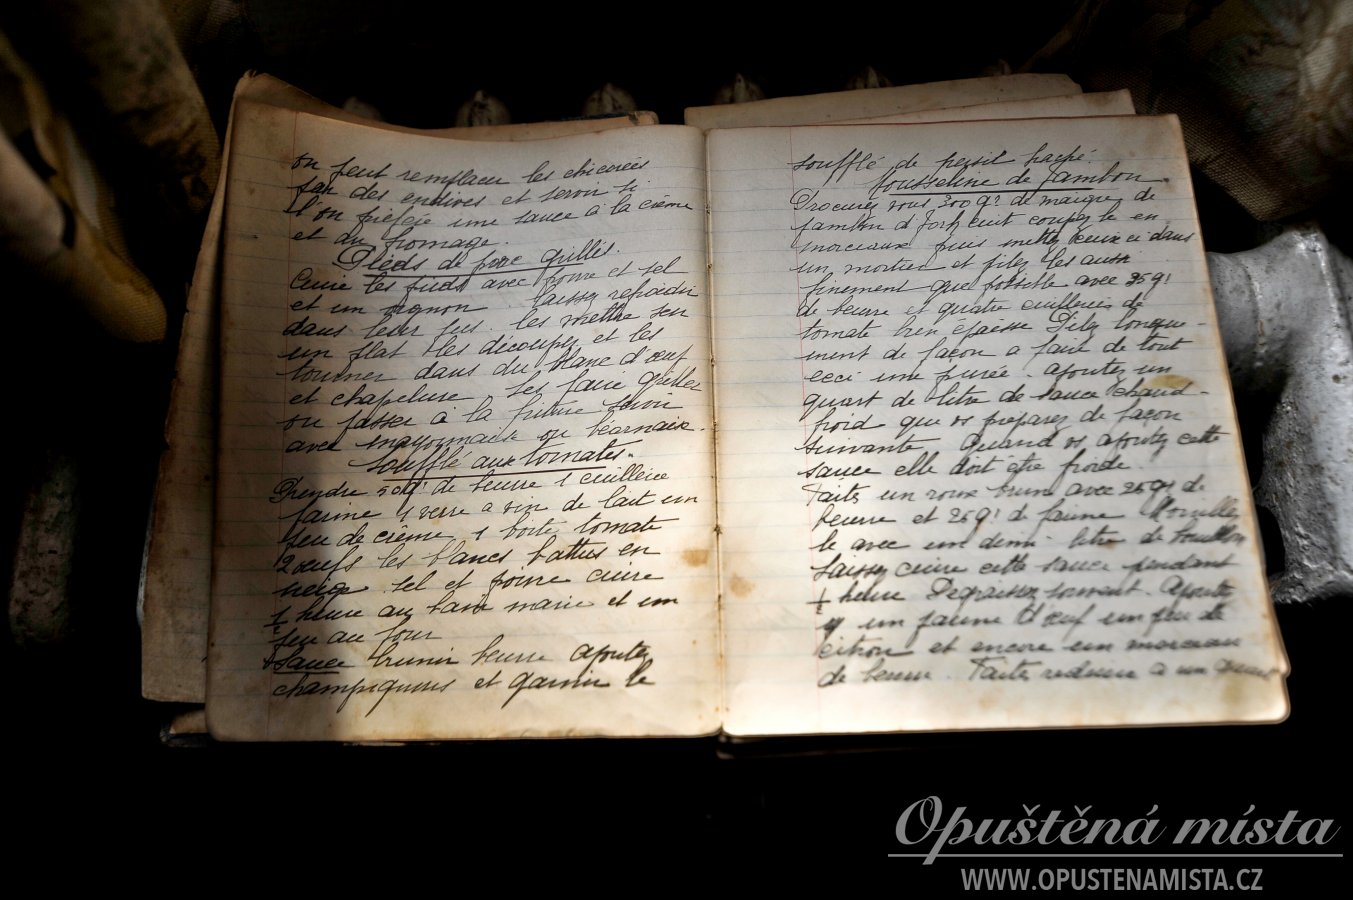 on peut remplacer les chicorées
par des endives et servir si
l'on préfère une sauce à la crème
et du fromage.
Pieds de porc grillés.
Cuire les pieds avec poivre et sel
et un oignon laissez refroidir
dans leur jus. les mettre sur
un plat les découpez et les
tourner dans du blanc d'œuf
et chapelure les faire griller
ou passer à la friture servir
avec mayonnaise ou béarnaise.
Soufflé aux tomates.
Prendre 50 gr de beurre 1 cuillère
farine 1 verre a vin de lait un
peu de crème, 1 boîte tomate
2 œufs les blancs battus en
neige. sel et poivre cuire
1/2 heure au bain marie et un
peu au four
Sauce brunir beurre ajoutez
champignons et garnir le
soufflé de persil haché.
Mousseline de Jambon.
Procurez vous 300 gr de maigre de
jambon d'York cuit coupez le en
morceaux puis mettez ceux ci dans
un mortier et pilez les aussi
finement que possible avec 25 gr
de beurre et quatre cuillerées de
tomate bien épaisse Pilez longue-
ment de façon a faire de tout
ceci une purée. ajoutez un
quart de litre de sauce chaud-
froid que vs préparez de façon
suivante Quand vs ajoutez cette
sauce elle doit être froide.
Faites un roux brun avec 25 gr de
beurre et 25 gr de farine Mouillez
le avec un demi-litre de bouillon
Laissez cuire cette sauce pendant
1/2 heure Dégraissez souvent. Ajoutez
y un jaune d'œuf un peu de
citron et encore un morceau
de beurre. Faites réduire a un quart
Opuštěná místa
WWW.OPUSTENAMISTA.CZ